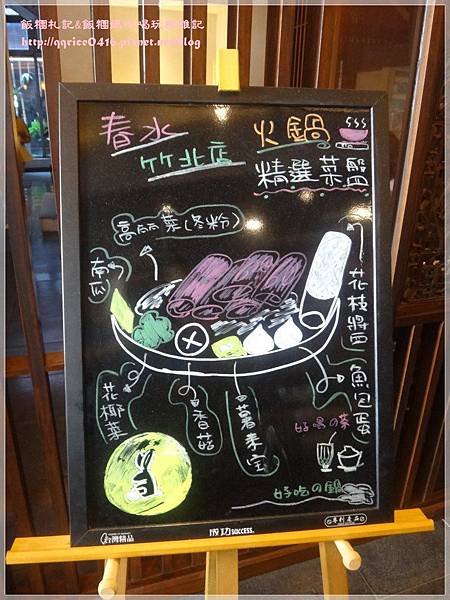 飯糰札記&飯糰媽吃喝玩樂雜記
http://qqrice0416.pixnet.net/blog
春水
竹北店
火鍋
精選菜盤
高麗菜(冬粉)
南瓜
花枝漿
魚包蛋
花椰菜
香菇
薯來宝
好喝の茶
好吃の鍋
台灣精品
成功 success.
專利產品